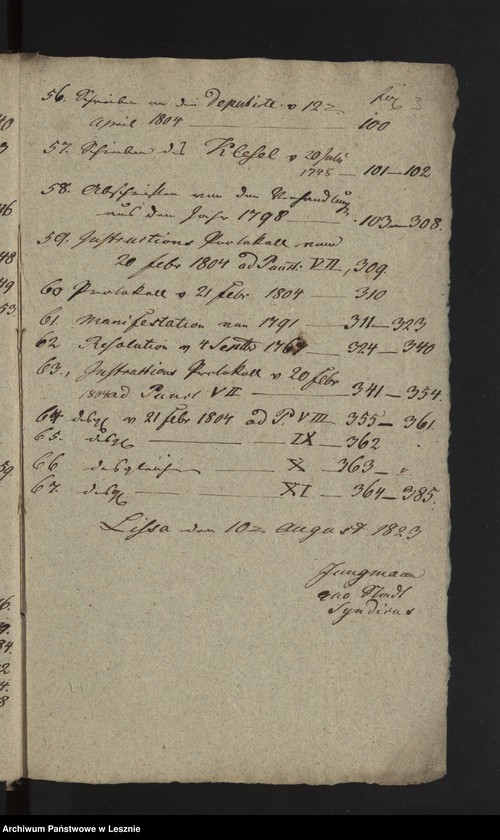 56. Schreiben an die Deputirte v 12t
April 1804 — 100
57. Schreiben des Klesel v 20 July
1748 — 101—102
58. Abschriften von den Verhandlung
aus dem Jahr 1798 — 103—308.
59. Instructions Protokoll vom
20 Febr 1804 ad Punct. VII, 309
60 Protokoll v 21 Febr. 1804 — 310
61. Manifestation von 1791 — 311—323
62 Resolution v 4 Septb 1767 — 324—340
63., Instructions Protokoll v 20 Febr
1804 ad Punct VII — 341—354.
64 desgl v 21 Febr 1804 ad P. VIII 355—361.
65. desgl — IX — 362
66 desgleichen — X — 363— "
67. desgl — XI — 364—385.
Lissa den 10t August 1823
Jungmann
qua Stadt
Syndicus
Archiwum Państwowe w Lesznie